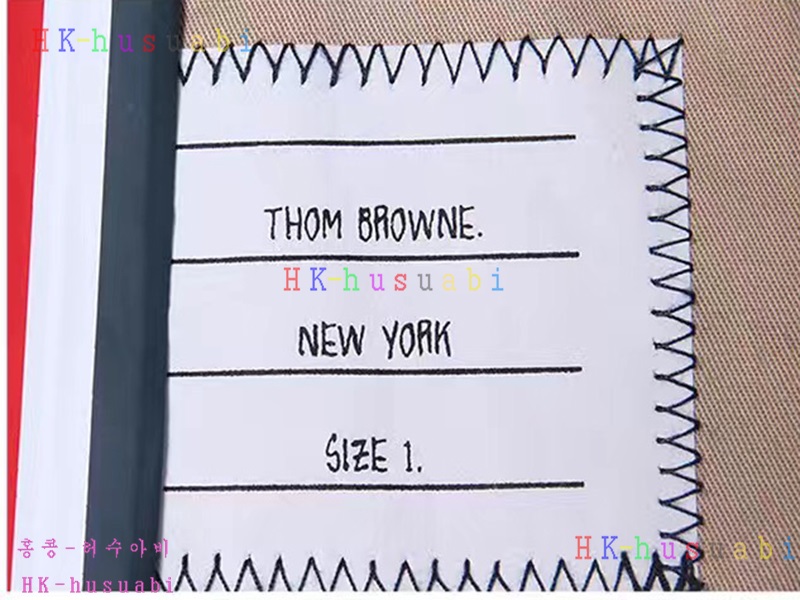 HK-husuabi
THOM BROWNE.
HK-husuabi
NEW YORK
SIZE 1.
홍콩-허수아비
HK-husuabi
HK-husuabi